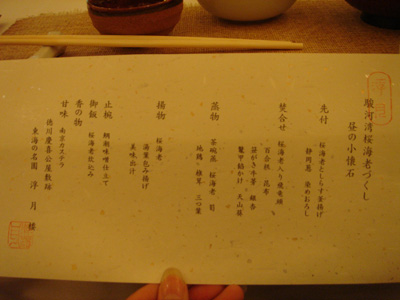 駿河湾桜海老づくし
昼の小懐石
先付
桜海老としらす釜揚げ
静岡葱 染めおろし
焚合せ
桜海老入り焼竜頭
百合根 昆布
鼈甲餡かけ 天山葵
蒸物
茶碗蒸 桜海老 筍
地鶏 椎茸 三つ葉
揚物
桜海老
湯葉包み揚げ
美味出汁
止椀
鯛潮味噌仕立て
御飯
桜海老炊込み
香の物
甘味
南京カステラ
徳川慶喜公屋敷跡
東海の名園 浮月楼